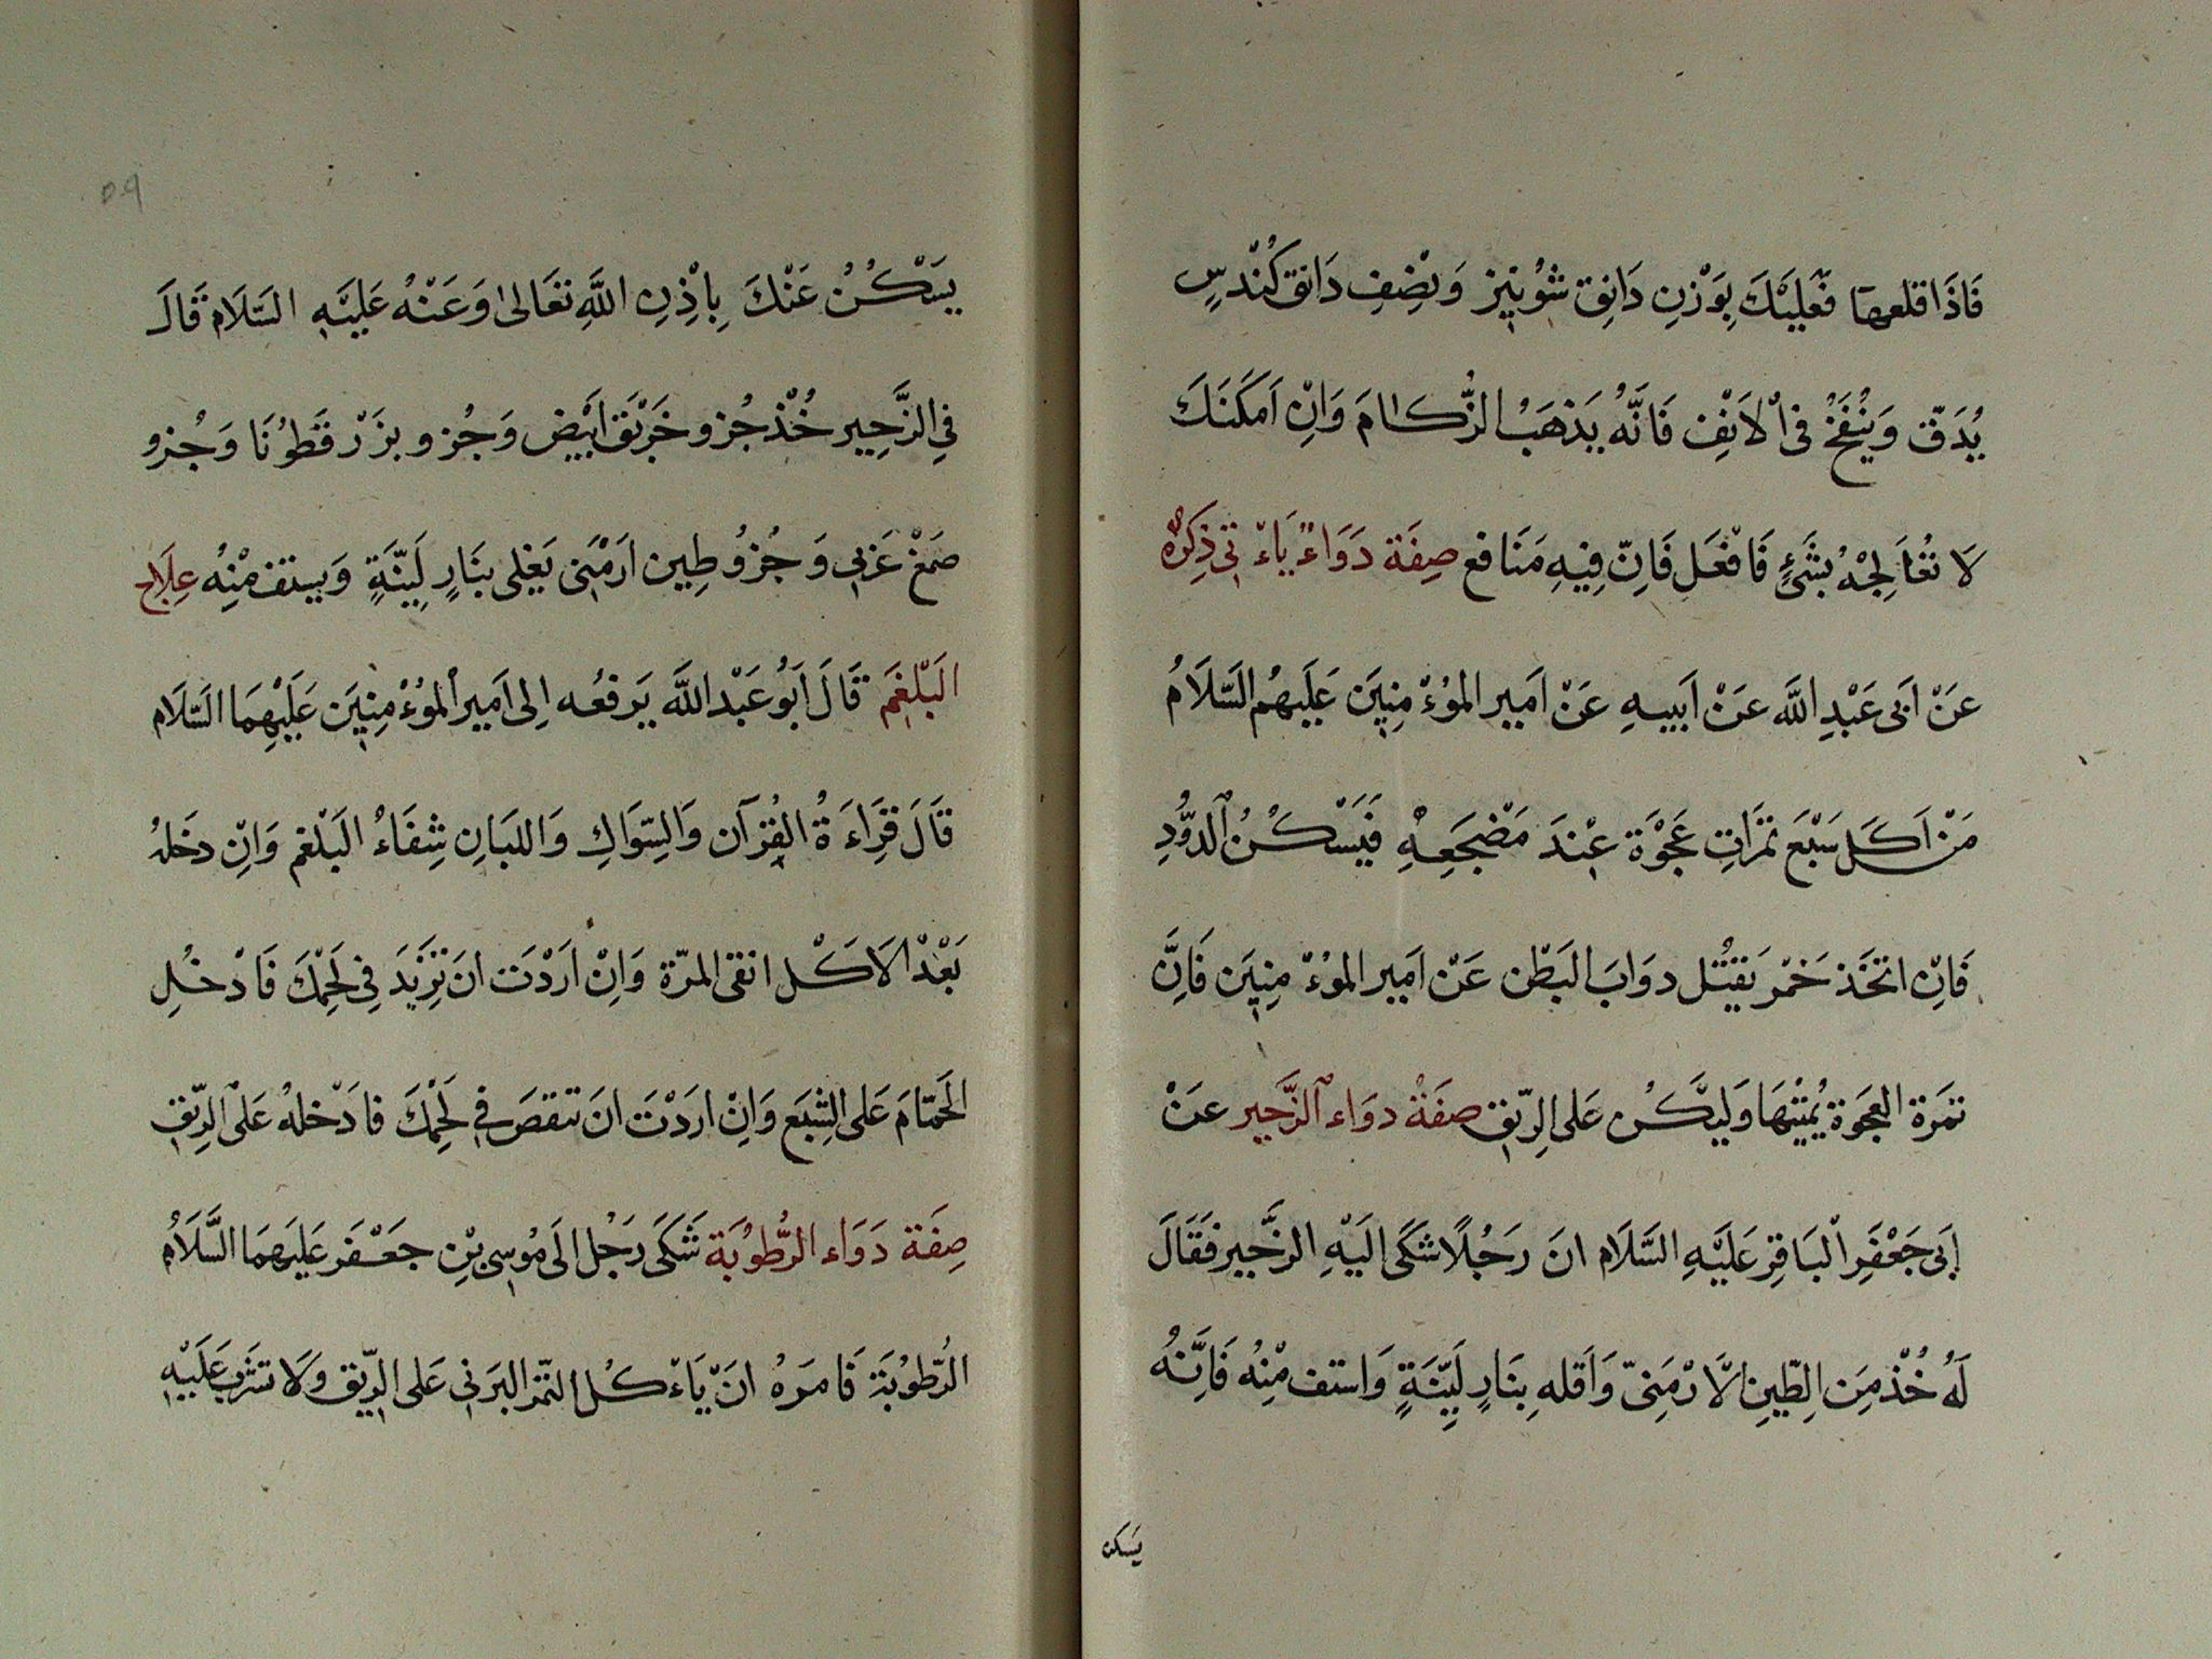 فَاذَا قلعها فَعَلَيْكَ بِوَزْنِ دَانِق شُوْنِيز وَنِصْفِ دَانق كُنْدُسٍ
يُدَقّ وَيُنْفَخُ فىِ اْلاَنْفِ فَانَّهُ يَذهَبُ الزُّكامَ وَاِنْ اَمكَنَكَ
لاَ تُعَالِجْهُ بشَئٍ فَافْعَل فَاِنّ فِيهِ مَنَافع صِفَة دَوَاءً يَاءتى ذِكرُهُ
عَنْ اَبى عَبْدِ اللَّه عَنْ اَبيهِ عَنْ اَمِير المُوءْمِنِينَ عَلَيهُم السَّلاَمُ
مَنْ اَكَلَ سَبْعَ تمَرَاتِ عَجْوَة عِنْدَ مَضْجَعِهِ فَيَسْكُنُ الدُّودِ
فَاِنْ اتخَذ خَمْر يَقتُل دوَابَ البَطْن عَنْ اَمِير المُوءْمِنِينَ فَاِنَّ
تمَرَة العَجَوة يُمِيتْهَا وَليَكُن عَلى الرِيّق صفَةُ دوَاء الزَّحِير عَنْ
اَبى جَعْفَرِ اْلبَاقِرِ عَلَيْهِ السَّلاَم انَ رَجُلاً شَكَى الَيْهِ الزَّحِير فَقَالَ
لَهُ خُذْ مِنَ الطّينِ الاَرْمَنىّ وَاَقلهِ بِنَارٍ لَيّنَةٍ وَاستف مْنِهُ فَاِنَّهُ
يَسكن
٥٩
يَسْكُنُ عَنْكَ بِاِذْنِ اللَّهِ تعَالىٰ وَعَنْهُ عَلَيْهِ السَّلاَم قَالَ
فىِ الزَّحِير خُذْ جُزو خَرْبَق ابَيْض وَجُزو بزَرْ قَطوُنَا وَجُزو
صَمَغْ عَرَبى وَجُزوُ طِين ارَمَنى يَغلى بنَارٍ لَيِّنَةٍ وَيستف مْنِهُ عِلَاج
البَلْغَم قَالَ اَبُو عَبْد اللَّه يَرفعُه اِلى اَمِير اْلمُوءْمِنِينَ عَلَيْهِمَا السَّلاَم
قَالَ قِرَاءَةُ القُرآن وَالسِّوَاكِ وَاللبَانِ شِفَاءُ البَلْغم وَاِنْ دخَلهُ
بَعْدْ الاَكْل انقى المرّة وَاِنْ ارَدْت انَ تزِيْدَ فىِ لَحِمْكَ فَادْخُلِ
الحَمّامَ عَلى الشِبَع وَاِنْ ارَدْتَ انَ تنقصَ فىِ لَحِمْكَ فادَخْلهُ عَلىْ الرِيّقِ
صِفَة دَوَاء الرُّطوُبَة شَكَى رَجُل الىَ مُوسى بْنِ جعَفَر عَلَيهَمَا السَّلاَمُ
الرُّطوُبَة فَامَرهُ انَ يَّاءكُل التّمْر البرَنى عَلى الرّيق وَلاَ تشَرب عَلَيْهِ